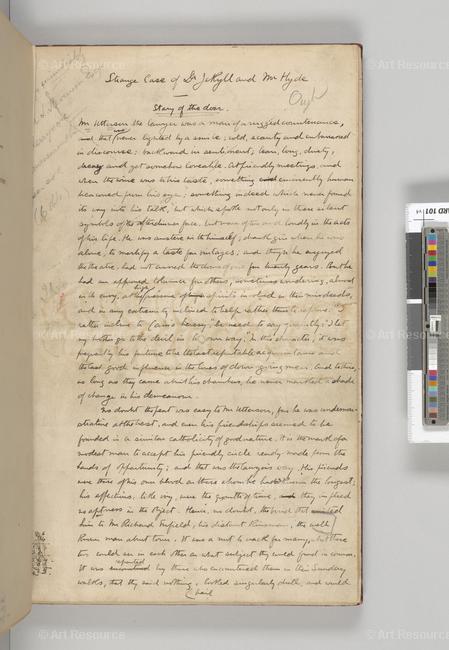 Strange Case of Dr Jekyll and Mr Hyde
Story of the door.
Mr Utterson the lawyer was a man of a rugged countenance,
that was never lighted by a smile; cold, scanty and embarrassed
in discourse; backward in sentiment; lean, long, dusty,
dreary and yet somehow loveable. At friendly meetings, and
when the wine was to his taste, something eminently human
beaconed from his eye; something indeed which never found
its way into his talk, but which spoke not only in these silent
symbols of the afterdinner face, but more often and loudly in the acts
of his life. He was austere with himself; drank gin when he was
alone, to mortify a taste for vintages; and though he enjoyed
the theatre, had not crossed the doors of one for twenty years. But he
had an approved tolerance for others, sometimes wondering, almost
with envy, at the high pressure of spirits involved in their misdeeds,
and in any extremity inclined to help rather than to reprove.
my brother go to the devil in his own way." In this character, it was
frequently his fortune to be the last reputable acquaintance and
the last good influence in the lives of down-going men. And to these,
so long as they came about his chambers, he never marked a shade
of change in his demeanour.
No doubt the feat was easy to Mr Utterson, for he was undemon-
strative at the best, and even his friendships seemed to be
founded in a similar catholicity of good nature. It is the mark of a
modest man to accept his friendly circle ready made from the
hands of opportunity; and that was the lawyer's way. His friends
were those of his own blood or those whom he had known the longest;
his affections, like ivy, were the growth of time, they implied
no aptness in the object. Hence, no doubt, the bond that united
him to Mr Richard Enfield, his distant kinsman, the well
known man about town. It was a nut to crack for many, what these
two could see in each other or what subject they could find in common.
It was reported by those who encountered them in their Sunday
walks, that they said nothing, looked singularly dull, and would
hail
© Art Resource
© Art Resource
© Art Resource
© Art Resource
© Art Resource
© Art Resource